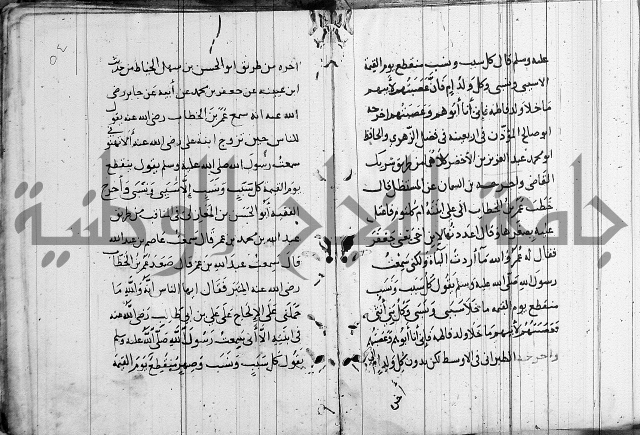 عليه وسلم قال كل سبب ونسب منقطع يوم القيمة
الا سببي ونسبي وكل ولد ام فان عصبتهم لابيهم
ما خلا ولد فاطمة فاني انا ابوهم وعصبتهم اخرجه
ابو صالح المؤذن في اربعينه في فضل الزهرا والحافظ
ابو محمد عبد العزيز بن الاخضر كلاهما من طريق شريك
القاضي عن المستظل قال
خطب عمر بن الخطاب الى علي ابنته ام كلثوم فاعتل
عليه بصغرها وقال اعددتها لابن اخي يعني جعفر
فقال له عمر والله ما اردت الباة ولكن سمعت
رسول الله صلى الله عليه وسلم يقول كل سبب ونسب
منقطع يوم القيمة ما خلا سببي ونسبي وكل بني انثى
فعصبتهم لابيهم ما خلا ولد فاطمة فاني انا ابوهم وعصبتهم
واخرجه الطبراني في الاوسط لكن بدون كل ولد ام الخ
اخرجه من طريق ابو الحسن بن سهل الخياط من حديث
ابن عيينه عن جعفر بن محمد عن ابيه عن جابر رضي
الله عنه انه سمع عمر بن الخطاب رضي الله عنه يقول
للناس حين تزوج ابنة علي رضي الله عنه الا تهنوني
سمعت رسول الله صلى الله عليه وسلم يقول ينقطع
يوم القيمة كل سبب ونسب الا سببي ونسبي واخرج
الفقيه ابو الحسن بن المغازلي في المناقب من طريق
عبد الله بن محمد بن عمر قال سمعت عاصم بن عبيد الله
قال سمعت عبد الله بن عمر قال صعد عمر بن الخطاب
رضي الله عنه المنبر فقال ايها الناس انه والله ما
حملني على الالحاح على علي بن ابي طالب رضي الله عنه
في ابنته الا اني سمعت رسول الله صلى الله عليه وسلم
يقول كل سبب ونسب وصهر منقطع يوم القيمة